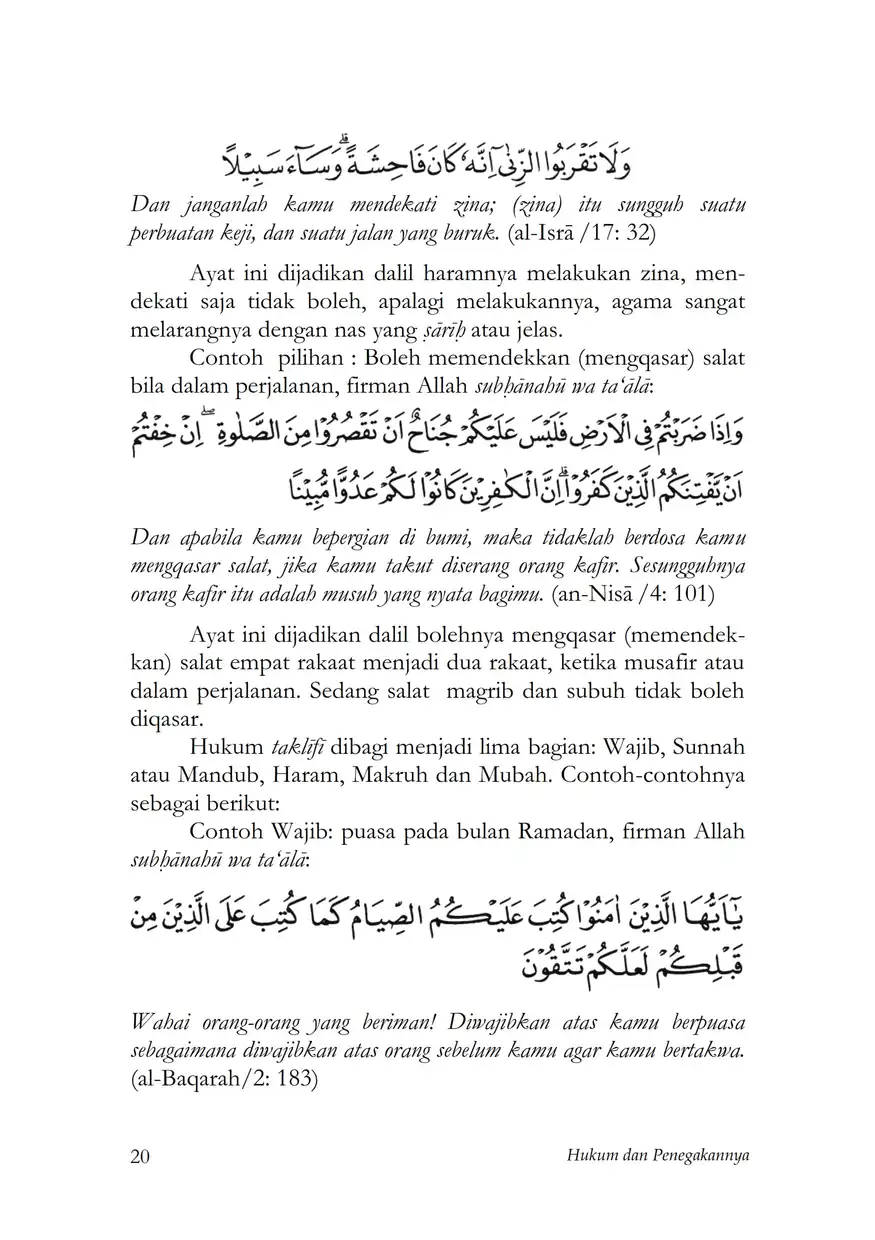 وَلَا تَقْرَبُوا الزِّنٰىٓ اِنَّهٗ كَانَ فَاحِشَةً ۗوَسَاۤءَ سَبِيْلًا
Dan janganlah kamu mendekati zina; (zina) itu sungguh suatu
perbuatan keji, dan suatu jalan yang buruk. (al-Isrā /17: 32)
Ayat ini dijadikan dalil haramnya melakukan zina, men-
dekati saja tidak boleh, apalagi melakukannya, agama sangat
melarangnya dengan nas yang ṣārīḥ atau jelas.
Contoh pilihan : Boleh memendekkan (mengqasar) salat
bila dalam perjalanan, firman Allah subḥānahū wa ta‘ālā:
وَاِذَا ضَرَبْتُمْ فِى الْاَرْضِ فَلَيْسَ عَلَيْكُمْ جُنَاحٌ اَنْ تَقْصُرُوْا مِنَ الصَّلٰوةِ ۖ اِنْ خِفْتُمْ
اَنْ يَّفْتِنَكُمُ الَّذِيْنَ كَفَرُوْاۗ اِنَّ الْكٰفِرِيْنَ كَانُوْا لَكُمْ عَدُوًّا مُّبِيْنًا
Dan apabila kamu bepergian di bumi, maka tidaklah berdosa kamu
mengqasar salat, jika kamu takut diserang orang kafir. Sesungguhnya
orang kafir itu adalah musuh yang nyata bagimu. (an-Nisā /4: 101)
Ayat ini dijadikan dalil bolehnya mengqasar (memendek-
kan) salat empat rakaat menjadi dua rakaat, ketika musafir atau
dalam perjalanan. Sedang salat magrib dan subuh tidak boleh
diqasar.
Hukum taklīfī dibagi menjadi lima bagian: Wajib, Sunnah
atau Mandub, Haram, Makruh dan Mubah. Contoh-contohnya
sebagai berikut:
Contoh Wajib: puasa pada bulan Ramadan, firman Allah
subḥānahū wa ta‘ālā:
يٰٓاَيُّهَا الَّذِيْنَ اٰمَنُوْا كُتِبَ عَلَيْكُمُ الصِّيَامُ كَمَا كُتِبَ عَلَى الَّذِيْنَ مِنْ
قَبْلِكُمْ لَعَلَّكُمْ تَتَّقُوْنَ
Wahai orang-orang yang beriman! Diwajibkan atas kamu berpuasa
sebagaimana diwajibkan atas orang sebelum kamu agar kamu bertakwa.
(al-Baqarah/2: 183)
20 Hukum dan Penegakannya